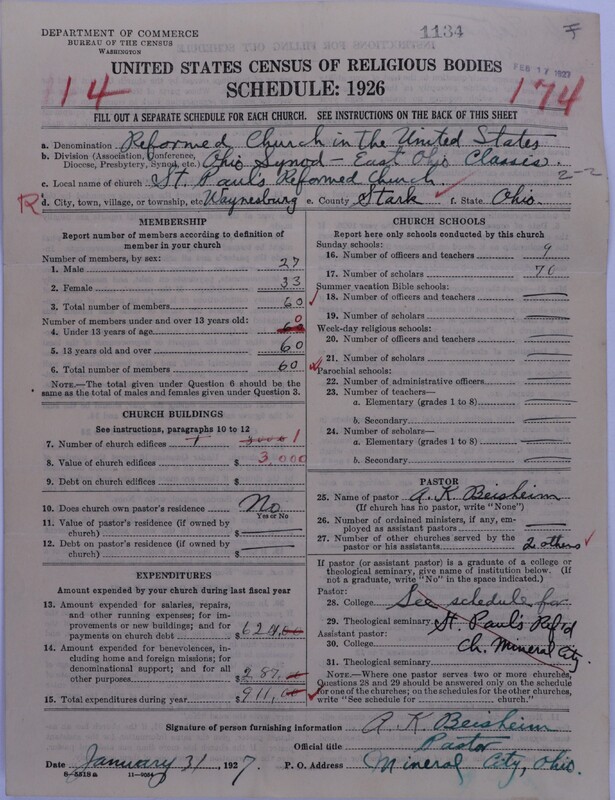 DEPARTMENT OF COMMERCE
BUREAU OF THE CENSUS
WASHINGTON
1134
FEB 17 1927
UNITED STATES CENSUS OF RELIGIOUS BODIES
SCHEDULE: 1926
114
174
FILL OUT A SEPARATE SCHEDULE FOR EACH CHURCH. SEE INSTRUCTIONS ON THE BACK OF THIS SHEET
a. Denomination Reformed Church in the United States
b. Division (Association, Conference, Diocese, Presbytery, Synod, etc.) Ohio Synod - East Ohio Classis.
2-2
c. Local name of church St. Paul's Reformed Church
R d. City, town, village, or township, etc. Waynesburg e. County Stark f. State Ohio.
MEMBERSHIP
Report number of members according to definition of
member in your church
Number of members, by sex:
1. Male 27
2. Female 33
3. Total number of members 60
Number of members under and over 13 years old:
4. Under 13 years of age 0
5. 13 years old and over 60
6. Total number of members 60
NOTE.—The total given under Question 6 should be
same as the total of males and females given under Question 3.
CHURCH BUILDINGS
See instructions, paragraphs 10 to 12
7. Number of church edifices 1 3000 1
8. Value of church edifices $3,000
9. Debt on church edifices $
10. Does church own pastor's residence No
Yes or No
11. Value of pastor's residence (if owned by
church) $
12. Debt on pastor's residence (if owned by
church) $
EXPENDITURES
Amount expended by your church during last fiscal year
13. Amount expended for salaries, repairs,
and other running expenses; for im-
provements or new buildings; and for
payments on church debt $624.00
14. Amount expended for benevolences,
including home and foreign missions; for
denominational support; and for all
other purposes $287.
15. Total expenditures during year $911.
CHURCH SCHOOLS
Report here only schools conducted by this church
Sunday schools:
16. Number of officers and teachers 9
17. Number of scholars 70
Summer vacation Bible schools:
18. Number of officers and teachers
19. Number of scholars
Week-day religious schools:
20. Number of officers and teachers
21. Number of scholars
Parochial schools:
22. Number of administrative officers
23. Number of teachers—
a. Elementary (grades 1 to 8)
b. Secondary
24. Number of scholars—
a. Elementary (grades 1 to 8)
b. Secondary
PASTOR
25. Name of pastor A. K. Beisheim
(If church has no pastor, write "None")
26. Number of ordained ministers, if any, em-
ployed as assistant pastors
27. Number of other churches served by the
pastor or his assistants 2 others
If pastor (or assistant pastor) is a graduate of a college or
theological seminary, give name of institution below. (If
not a graduate, write "No" in the space indicated.)
Pastor:
28. College See schedule for
29. Theological seminary St. Paul's Ref'd
Assistant pastor:
30. College Ch. Mineral City.
31. Theological seminary
NOTE.—Where one pastor serves two or more churches,
Questions 28 and 29 should be answered only on the schedule
for one of the churches; on the schedules for the other churches,
write "See schedule for church."
Signature of person furnishing information A. K. Beisheim
Official title Pastor
Date January 31, 1927. P. O. Address Mineral City, Ohio.
8-5318a 11-9034